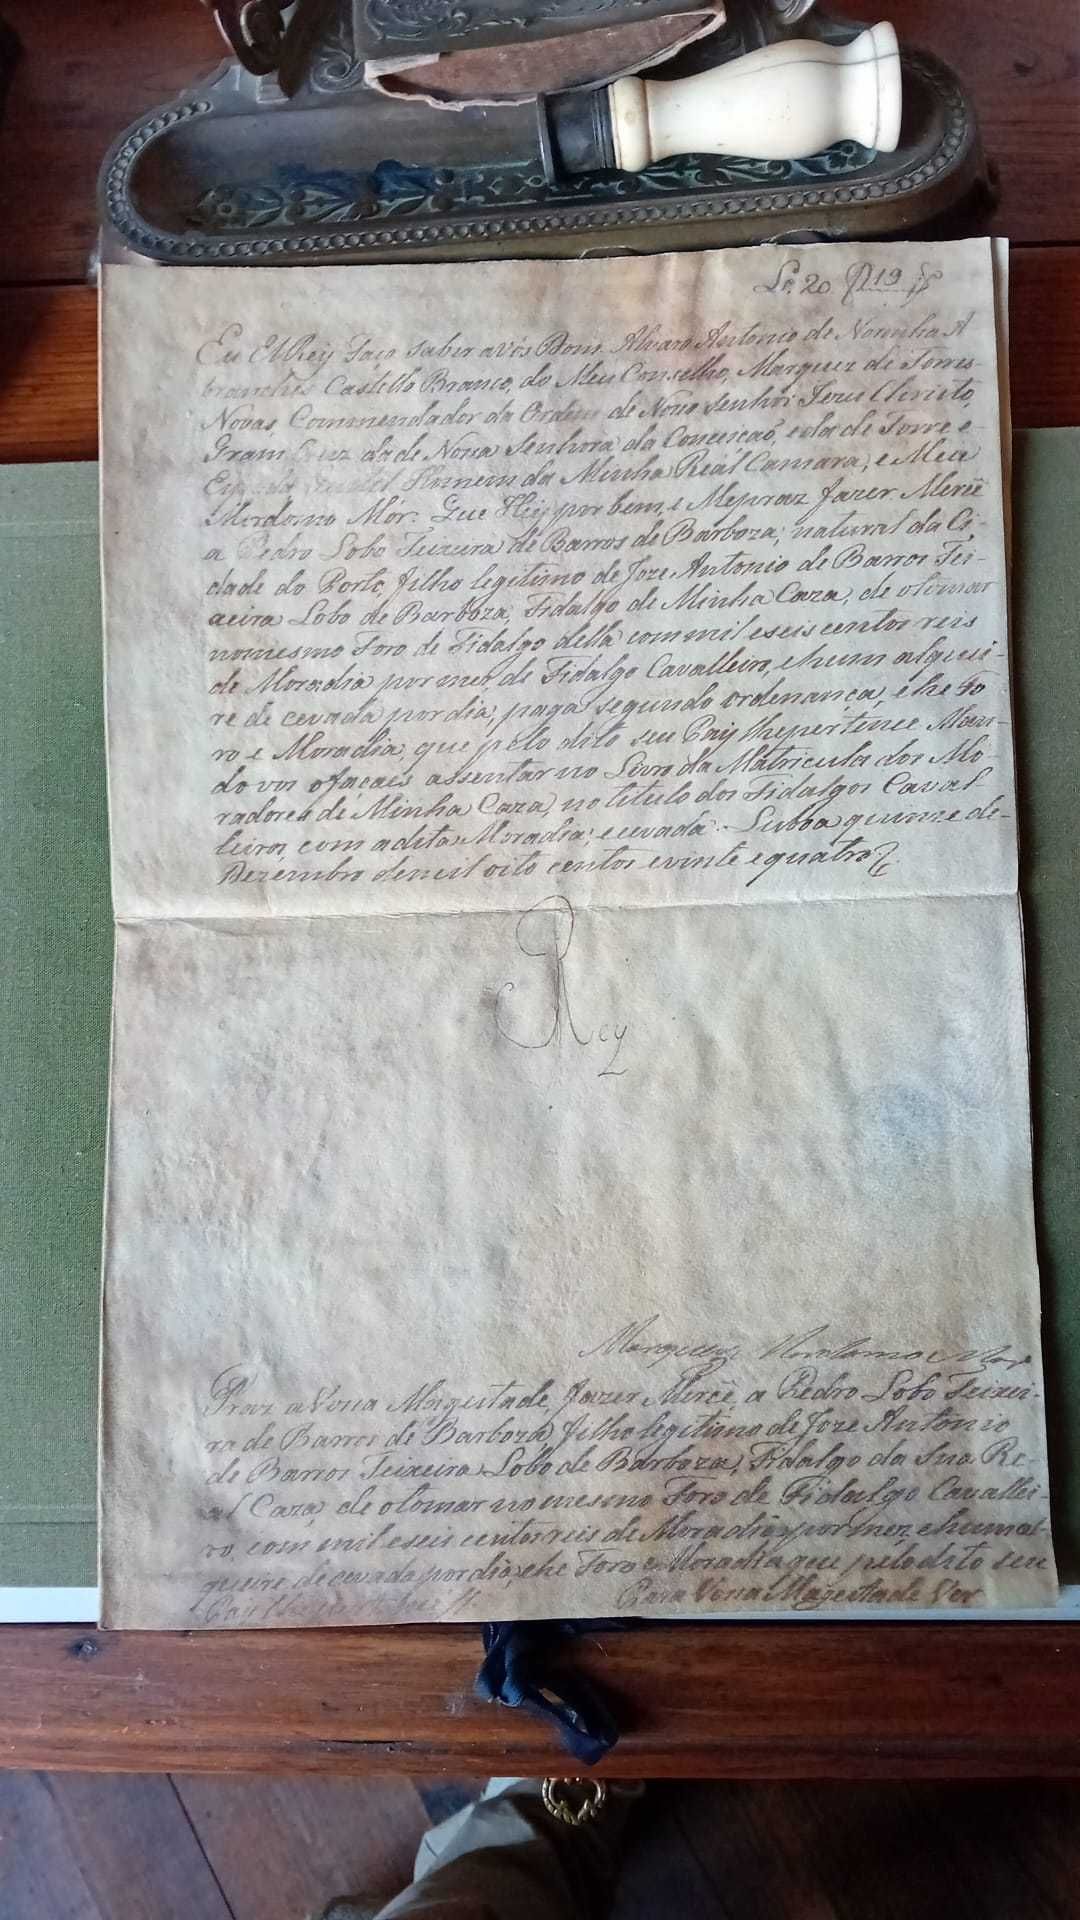 Lo. 20 f 119
Eu ElRey Faço saber a vós Dom Alvaro Antonio de Noronha A
branches Castello Branco, do Meu Conselho, Marquez de Torres
Novas, Commendador da Ordem de Nosso Senhor Jezus Christo,
Gram Cruz da de Nossa Senhora da Conceicaõ, e da de Torre e
Espada Gentil Homem da Minha Reál Camara, e Meu
Mordomo Mór: Que Hey por bem, e Me praz fazer Mercê
a Pedro Lobo Teixeira de Barros de Barboza; natural da Ci-
dade do Porto, filho legitimo de Joze Antonio de Barros Tei-
xeira Lobo de Barboza, Fidalgo de Minha Caza, de o tomar
no mesmo Foro de Fidalgo della com mil e seis centos reis
de Moradia por mez, de Fidalgo Cavalleiro, e hum alquei-
re de cevada por dia, paga segundo ordenança, e he Fo
ro e Moradia, que pelo dito seu Pay lhe pertence Man-
do vos o façaes assentar no Livro da Matricula dos Mo-
radores de Minha Caza, no titulo dos Fidalgos Caval-
leiros, com a dita Moradia; e cevada. Lisboa quinze de-
Dezembro de mil oito centos e vinte e quatro
Rey
Marquez Mordomo Mor
Praz a Vossa Magestade, fazer Mercê, a Pedro Lobo Teixei-
ra de Barros de Barboza filho legitimo de Joze Antonio
de Barros Teixeira Lobo de Barboza, Fidalgo da Sua Re-
al Caza, de o tomar no mesmo Foro de Fidalgo Cavallei-
ro, com mil e seis centos reis de Moradia por mez, e hum al-
queire de cevada por dia, e he Foro e Moradia que pelo dito seu
Pay lhe pertence
Para Vossa Magestade Ver